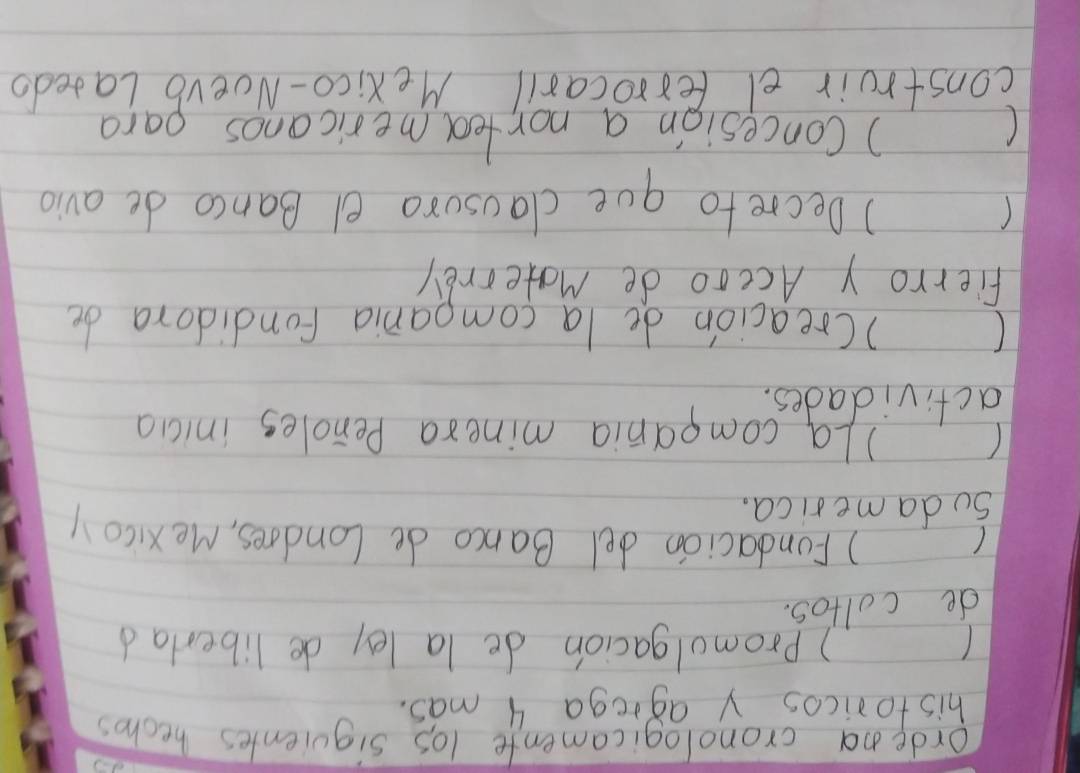 Ordena cronologicamente los siguientes hechos
historicos y agrega 4 mas.
( ) Promulgación de la ley de libertad
de cultos.
( ) Fundación del Banco de Londres, Mexico y
Sudamerica.
( ) La compañia minera Peñoles inicia
actividades.
( ) Creación de la compañia Fundidora de
Fierro y Acero de Materrey
( ) Decreto que clausura el Banco de avio
( ) Concesión a norteamericanos para
construir el ferrocaril Mexico-Nuevo Laredo